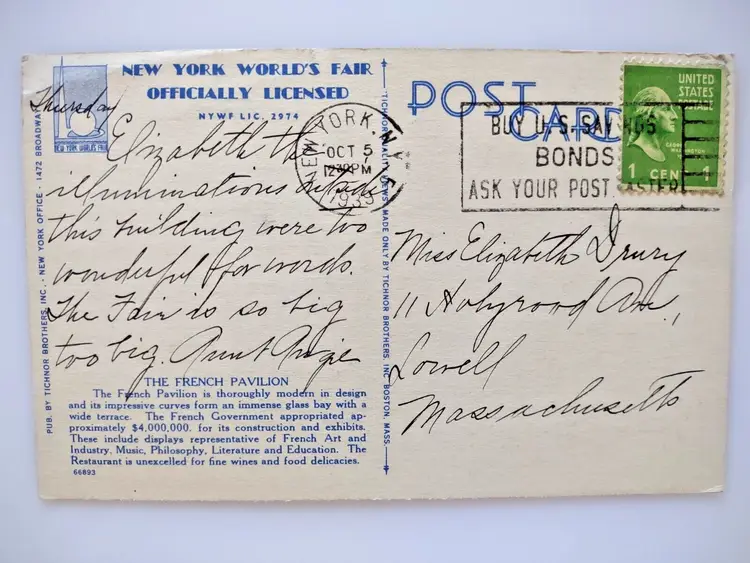 NEW YORK WORLD'S FAIR
OFFICIALLY LICENSED
NYWF LIC. 2974
NEW YORK WORLD'S FAIR
Thursday
Elizabeth the
illuminations outside
this building were too
wonderful for words.
The Fair is so big
too big. Aunt Angie
THE FRENCH PAVILION
The French Pavilion is thoroughly modern in design
and its impressive curves form an immense glass bay with a
wide terrace. The French Government appropriated ap-
proximately $4,000,000. for its construction and exhibits.
These include displays representative of French Art and
Industry, Music, Philosophy, Literature and Education. The
Restaurant is unexcelled for fine wines and food delicacies.
66893
PUB. BY TICHNOR BROTHERS, INC., - NEW YORK OFFICE - 1472 BROADWAY
TICHNOR QUALITY VIEWS MADE ONLY BY TICHNOR BROTHERS, INC. BOSTON, MASS.
POST CARD
NEW YORK, N.Y.
OCT 5
12 PM
1939
BUY U.S. SAVINGS
BONDS
ASK YOUR POSTMASTER
UNITED
STATES
POSTAGE
GEORGE
WASHINGTON
1 CENT
Miss Elizabeth Drury
11 Holyrood Ave,
Lowell
Massachusetts